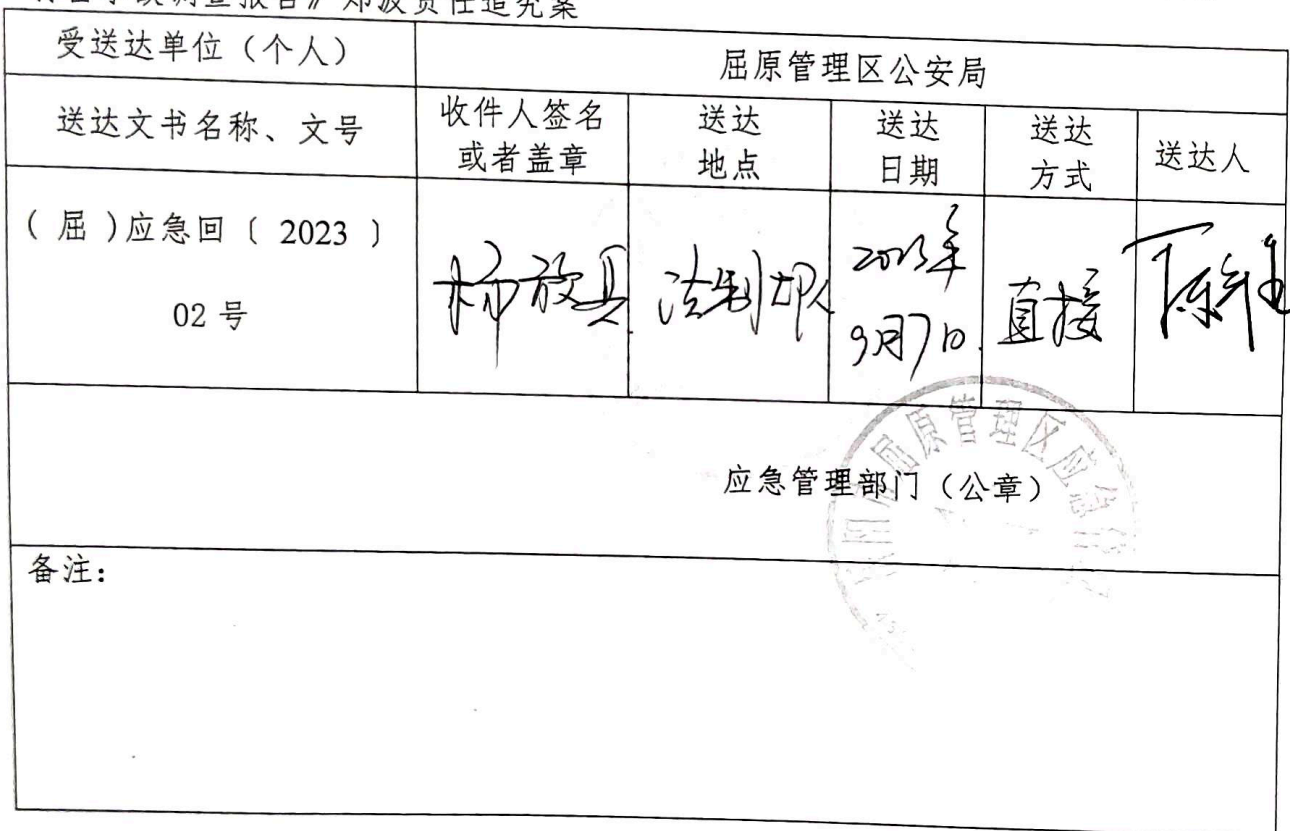 调查报告》郑波责任追究案
受送达单位（个人）
屈原管理区公安局
送达文书名称、文号
收件人签名
或者盖章
送达
地点
送达
日期
送达
方式
送达人
（ 屈 ）应急回〔 2023 〕
02 号
法制大队
2023年
9月7日.
直接
应急管理部门（公章）
屈原管理区应急管
备注：